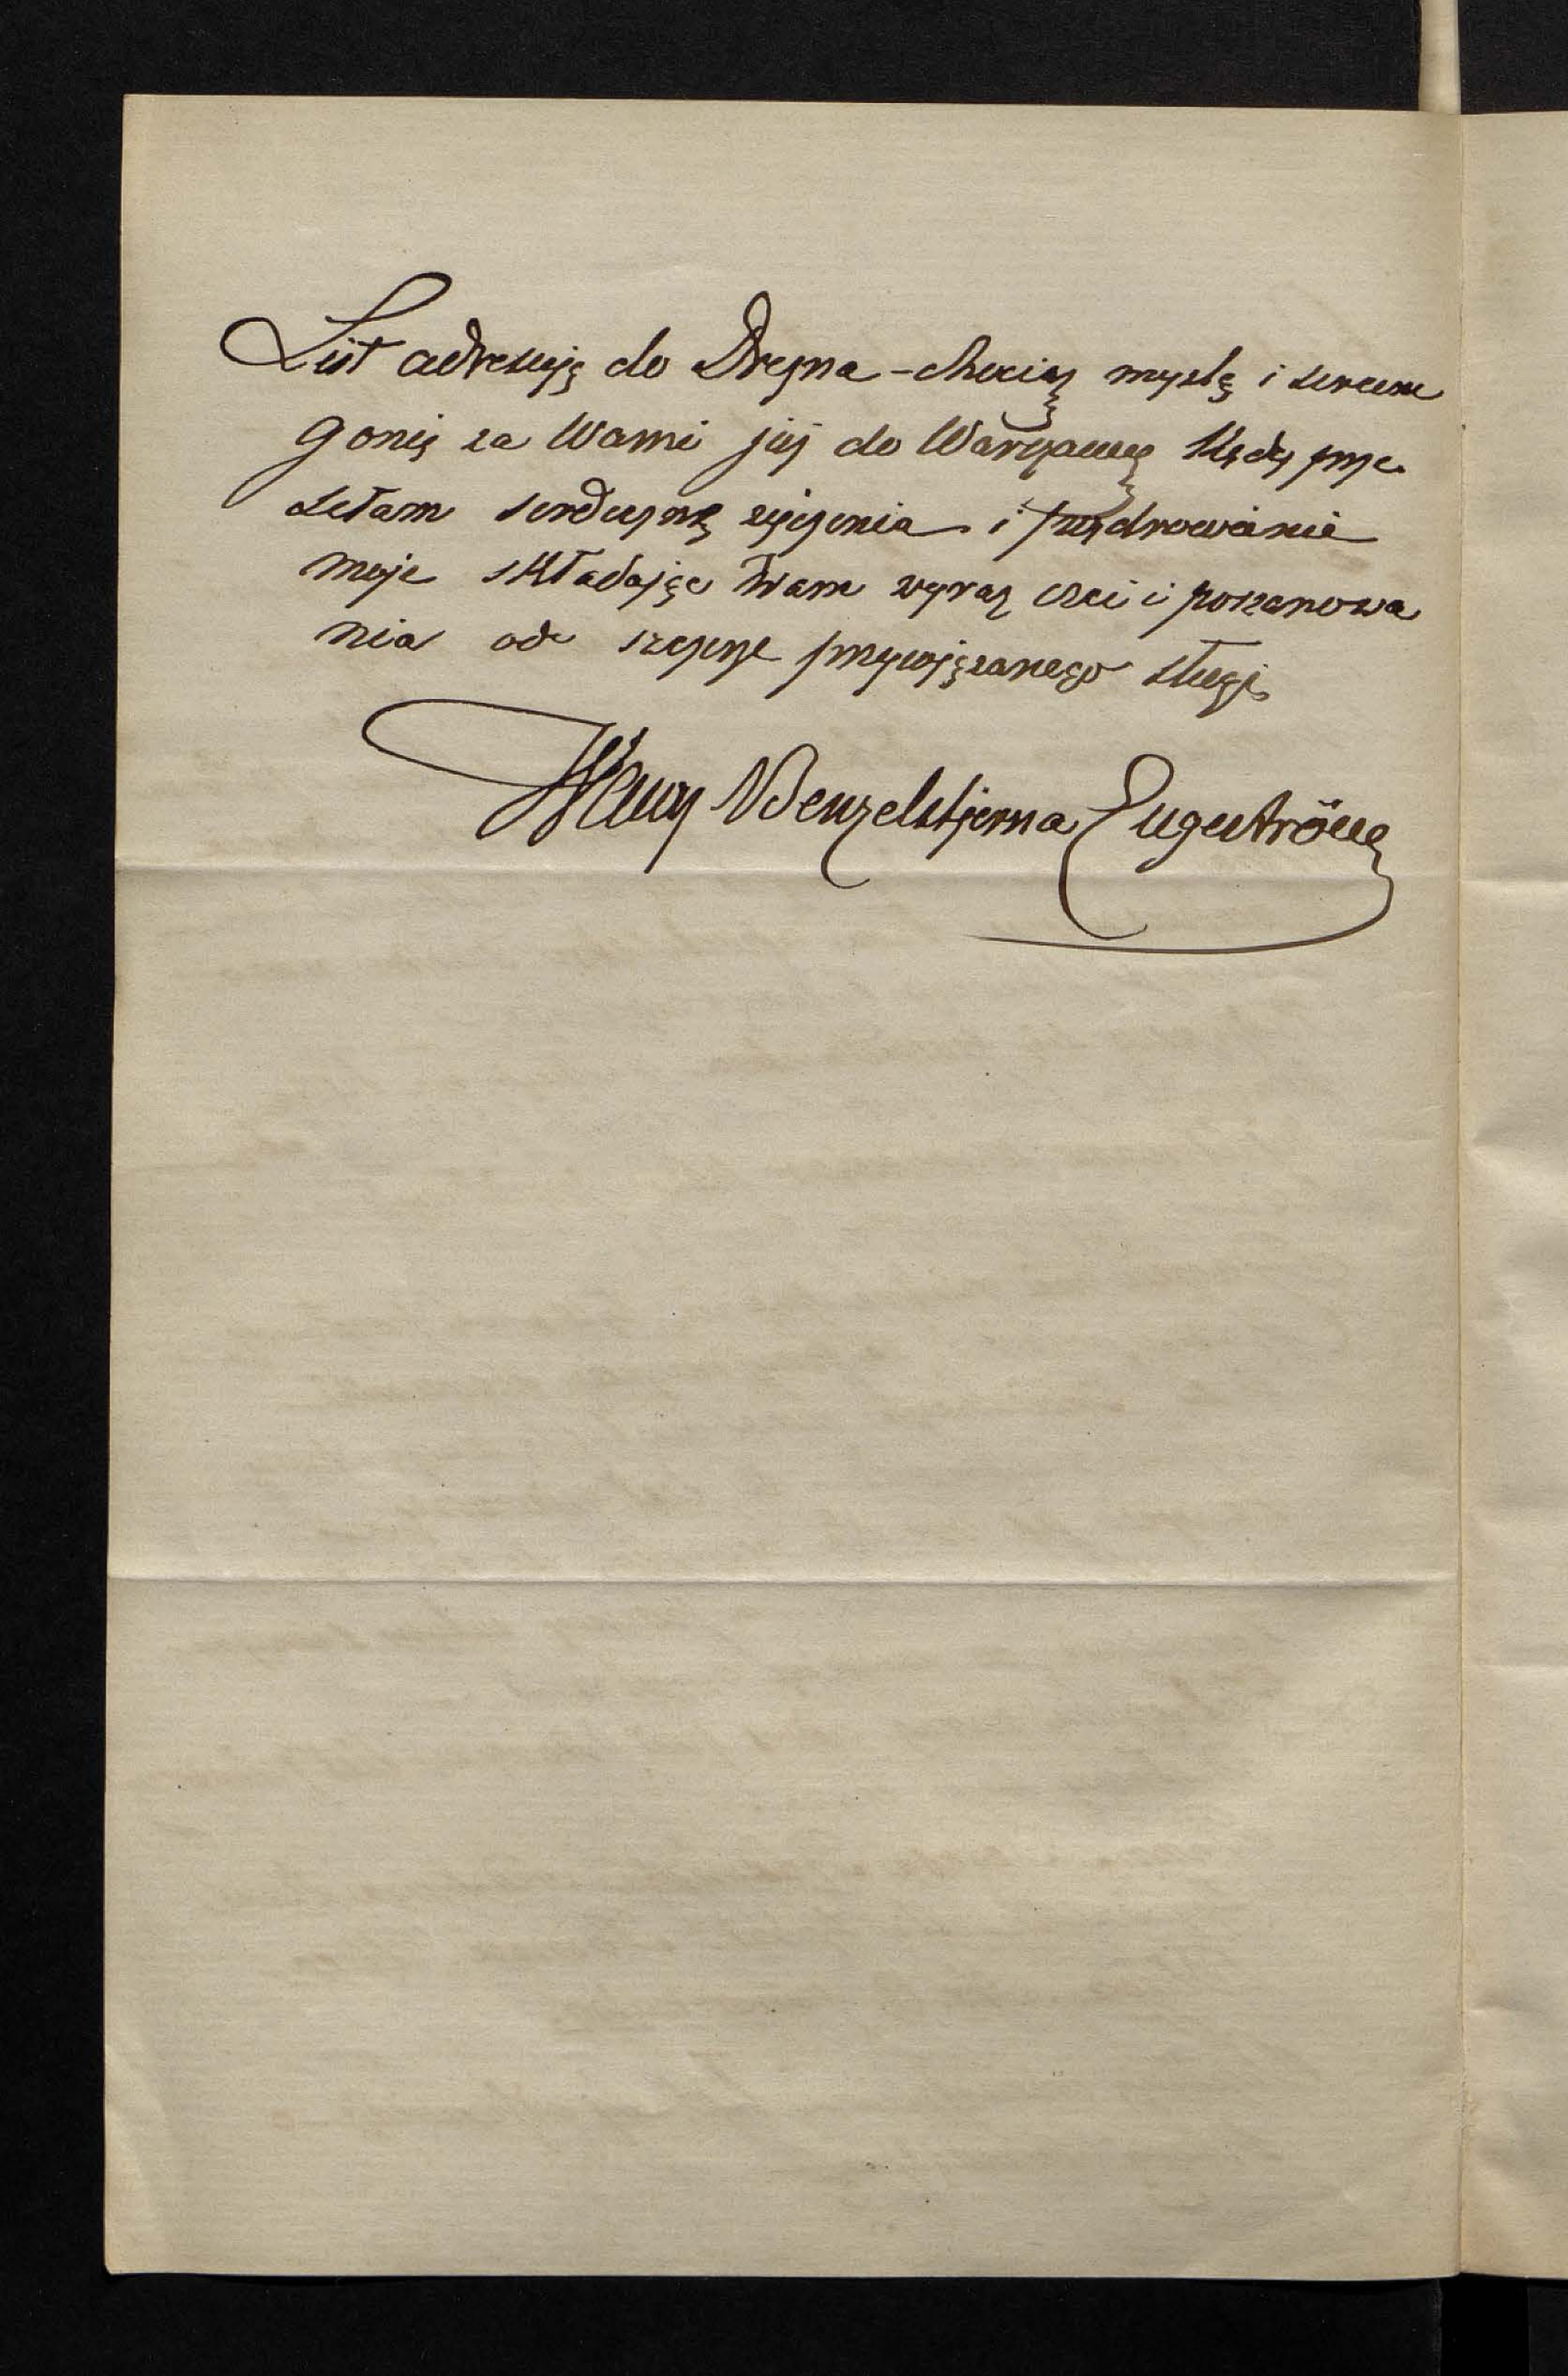 List adresuję do Drezna - chociaż myślą i sercem
gonię za Wami już do Warszawy kędy prze
sełam serdeczne życzenia i pozdrowienie
moje składając Wam wyraz czci i poszanowa
nia od szczerze przywiązanego sługi
Wawrz Benzelstjerna Engeström